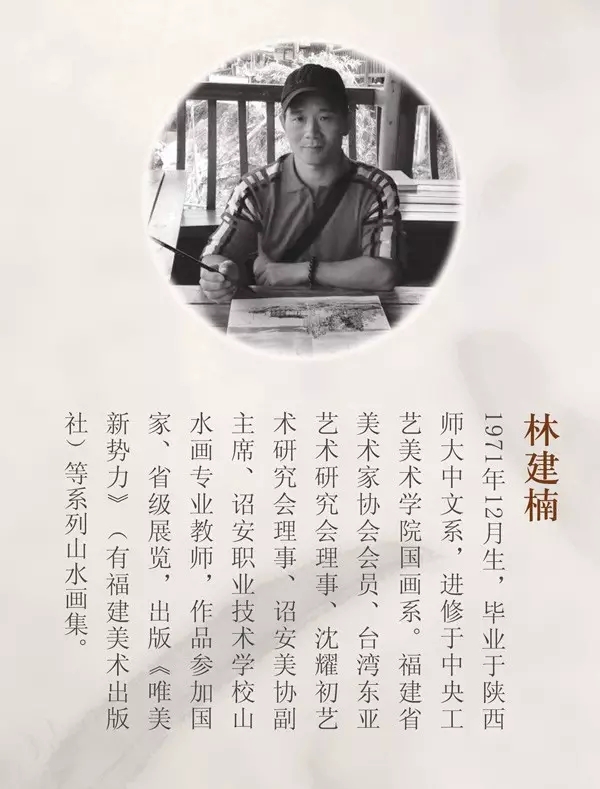 林建楠
1971年12月生，毕业于陕西
师大中文系，进修于中央工
艺美术学院国画系。福建省
美术家协会会员、台湾东亚
艺术研究会理事、沈耀初艺
术研究会理事、诏安美协副
主席、诏安职业技术学校山
水画专业教师，作品参加国
家、省级展览，出版《唯美
新势力》（有福建美术出版
社）等系列山水画集。